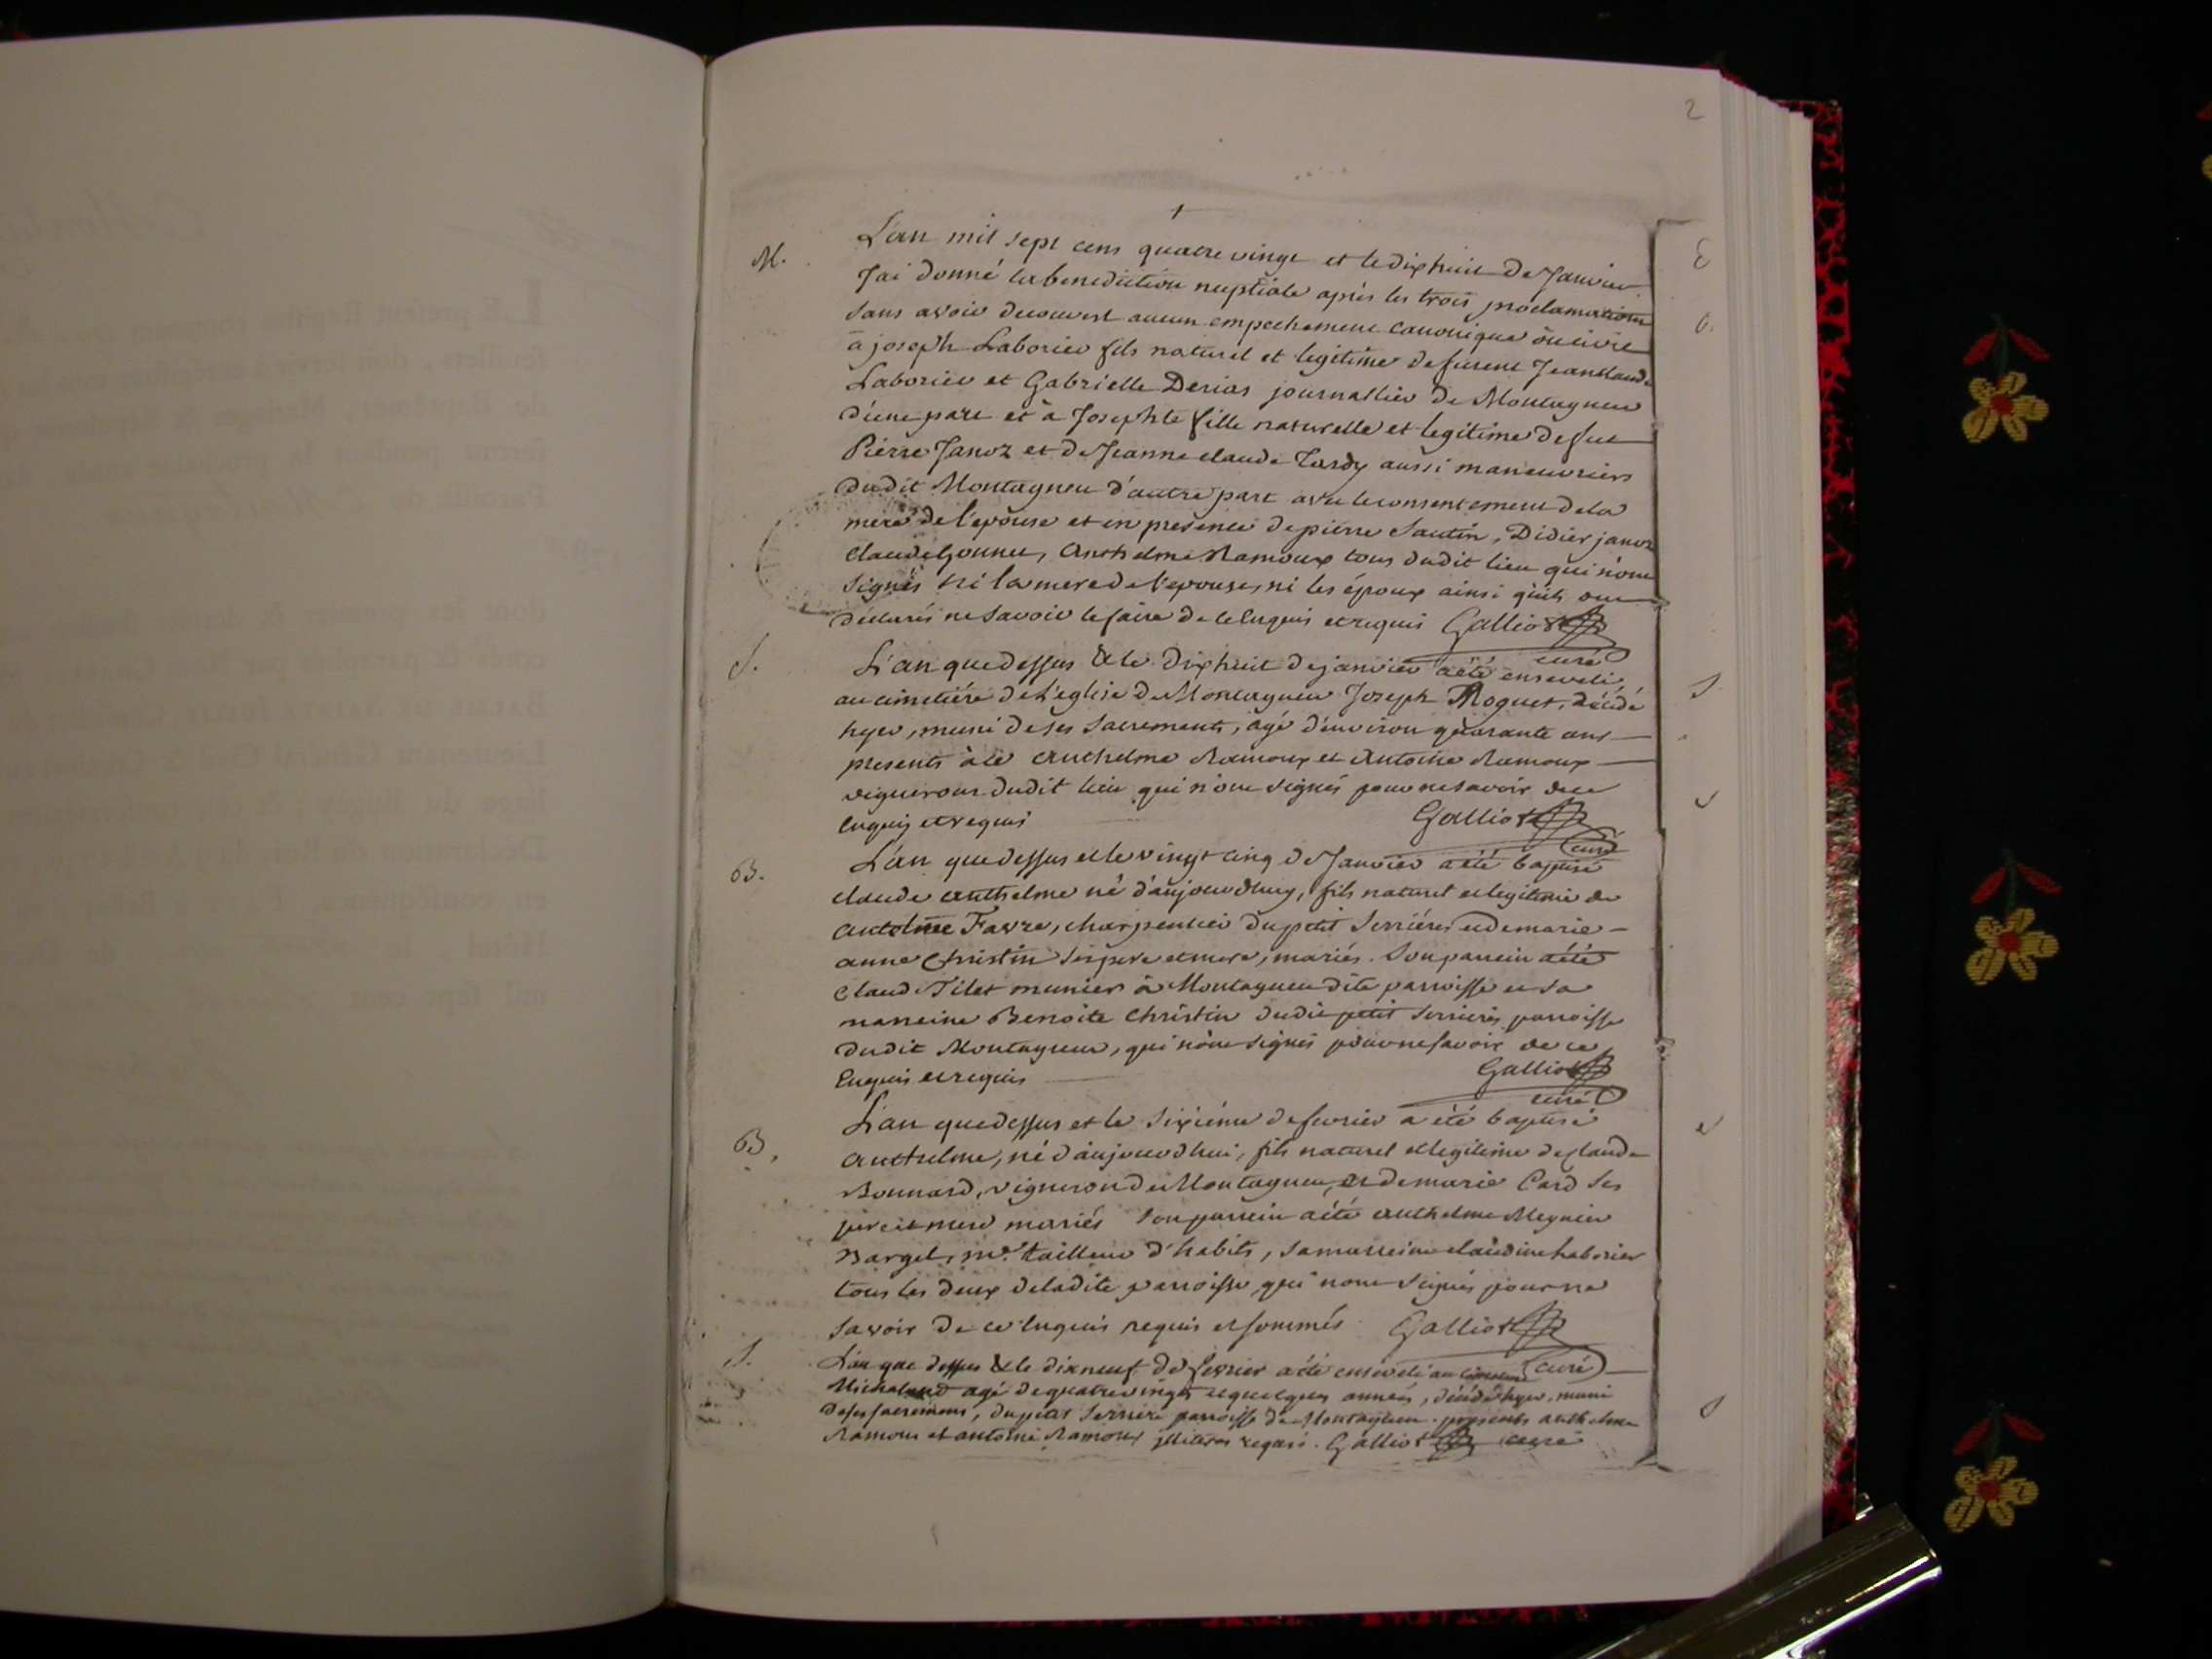 2
M.
L'an mil sept cens quatre vingt et le dixhuit de Janvier
J'ai donné la benediction nuptiale après les trois proclamations
sans avoir decouvert aucun empechement canonique ou civil
à joseph Laborier fils naturel et legitime de furent Jean Claude
Laborier et Gabrielle Derias journallier de Montagneu
d'une part et à Josephte fille naturelle et legitime de fut
Pierre Janoz et de Jeanne claude Tardy aussi maneuvriers
dudit Montagneu d'autre part avec le consentement de la
mere de l'epouse et en presence de pierre Sautin, Didier janoz
claude Gonnet, Anthelme Ramoux tous dudit lieu qui n'ont
signés ni la mere de l'epouse, ni les époux ainsi qu'ils ont
déclarés ne savoir le faire de ce enquis et requis Galliot
curé
S.
L'an que dessus & le dixhuit de janvier a été enseveli
au cimetière de l'eglise de Montagneu Joseph Roguet, décédé
hyer, muni de ses sacrements, agé d'environ quarante ans
presents à ce Anthelme Ramoux et Antoine Ramoux
vignerons dudit lieu qui n'ont signés pour ne savoir de ce
enquis et requis Galliot
curé
B.
L'an que dessus et le vingt cinq de Janvier a été baptisé
claude anthelme né d'aujourdhuy, fils naturel et legitime de
Antelme Favre, charpentier du petit Serrières et de marie
anne Christin ses pere et mere, mariés. Son parrein a été
Claud Tilet munier à Montagneu dite parroisse et sa
marreine Benoite Christin dudit petit Serrieres parroisse
dudit Montagneu, qui n'ont signés pour ne savoir de ce
Enquis et requis Galliot
curé
B.
L'an que dessus et le sixiéme de fevrier a été baptisé
Anthelme, né d'aujourdhui, fils naturel et legitime de claude
Bonnard, vigneron de Montagneu, et de marie Card ses
pere et mere mariés son parrein a été anthelme Meynier
Barget, me. tailleur d'habits, sa marreine claudine Laborier
tous les deux de ladite parroisse, qui n'ont signés pour ne
savoir de ce enquis requis et sommés Galliot
curé
S.
L'an que dessus & le dixneuf de fevrier a été enseveli au cimetiere
Michaland agé de quatre vingt et quelques années, décédé hyer, muni
de ses sacremens, du petit Serriere parroisse de Montagneu. presents anthelme
Ramoux et antoine Ramoux illiteres requis. Galliot curé